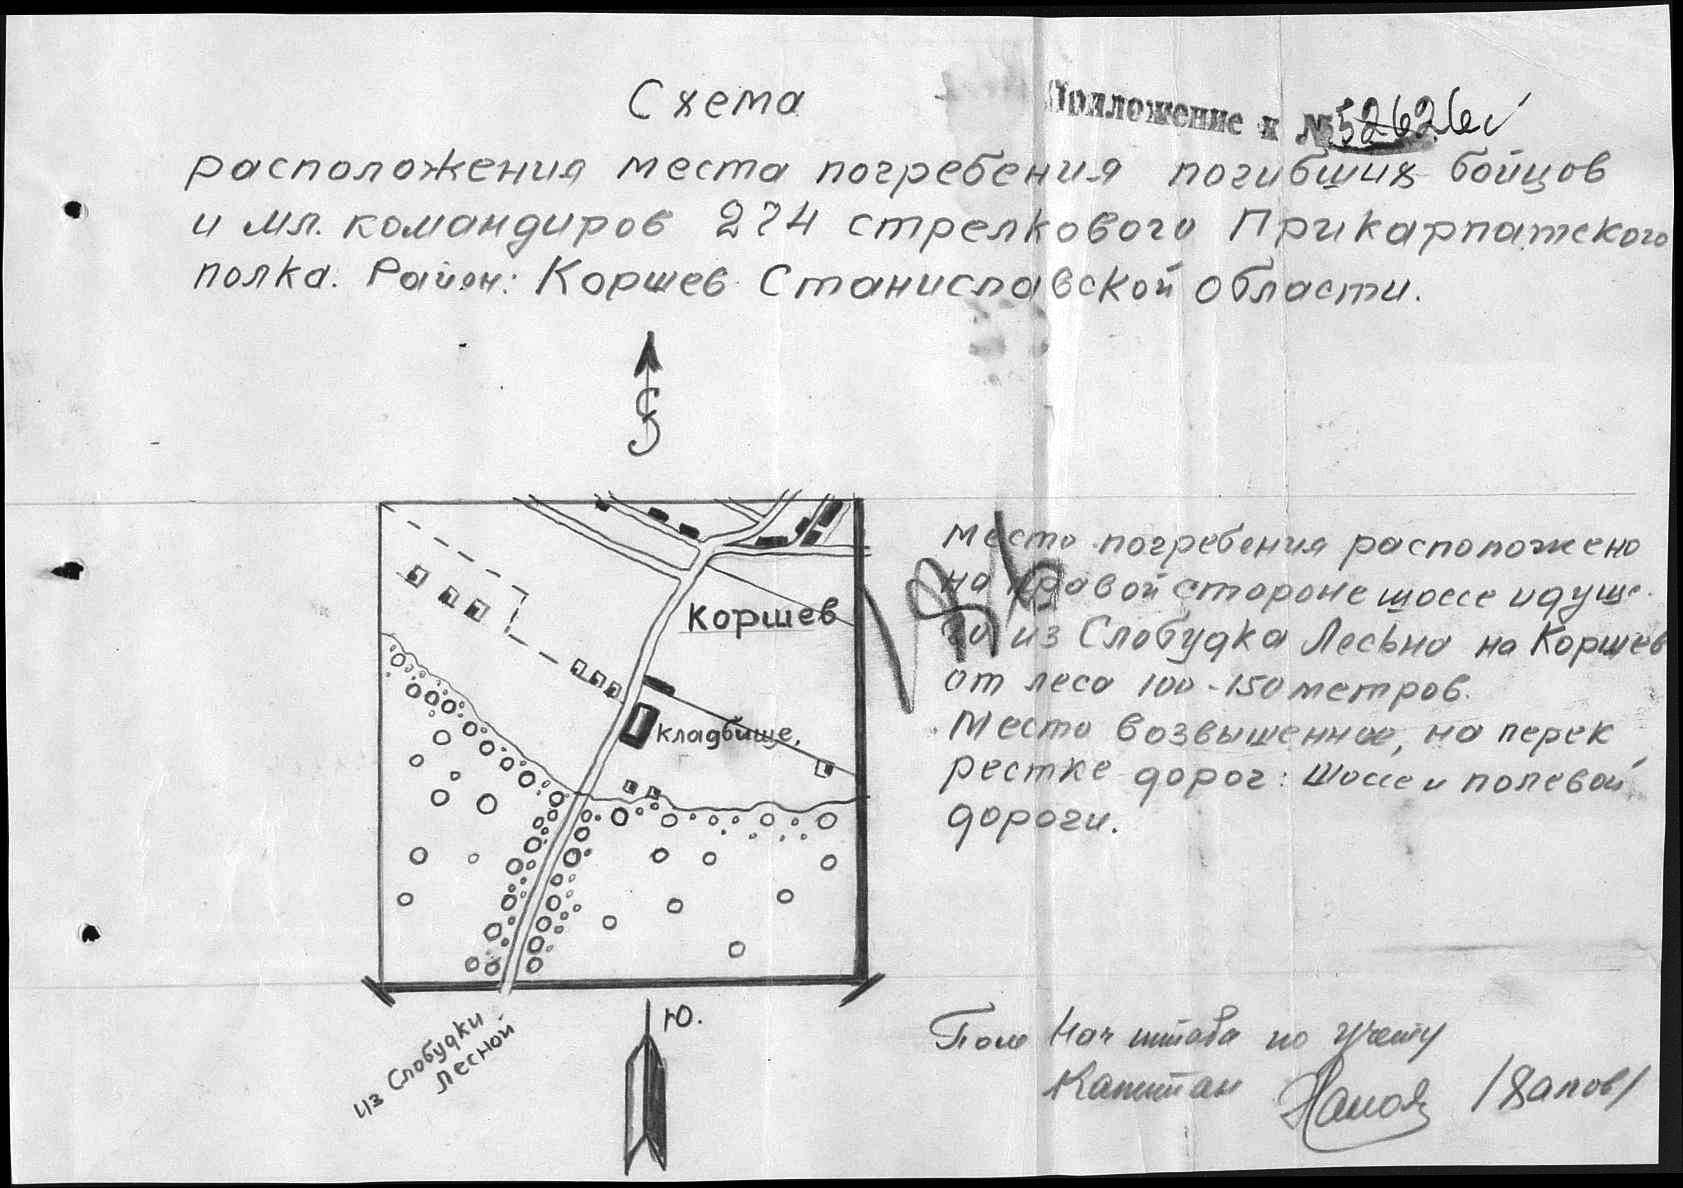 Схема
Приложение к № 52626с
расположения места погребения погибших бойцов
и мл. командиров 274 стрелкового Прикарпатского
полка. Район: Коршев Станиславской области.
С
Коршев
кладбище.
Место погребения расположено
на правой стороне шоссе идуще-
го из Слобудка Лесьна на Коршев
от леса 100-150 метров.
Место возвышенное, на перек
рестке дорог: шоссе и полевой
дороги.
Ю.
из Слобудки
Лесной
Пом Нач штаба по учету
Капитан